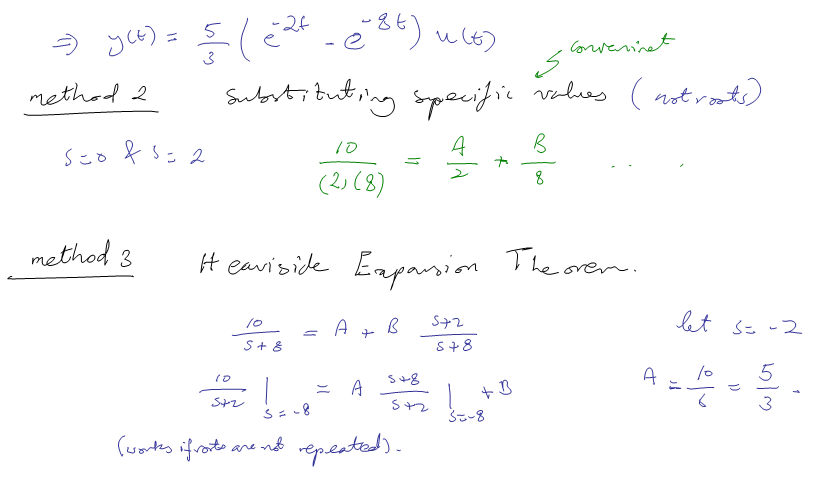 ⇒ y(t) = 5/3 ( e^{-2t} - e^{-8t} ) u(t)
conveninet
method 2 Substituting specific values ( not roots)
s=0 & s=2 10/((2)(8)) = A/2 + B/8 .. .
method 3 Heaviside Expansion Theorem.
10/(s+8) = A + B (s+2)/(s+8) let s=-2
10/(s+2) |_{s=-8} = A (s+8)/(s+2) |_{s=-8} + B A = 10/6 = 5/3 .
(works if roots are not repeated).